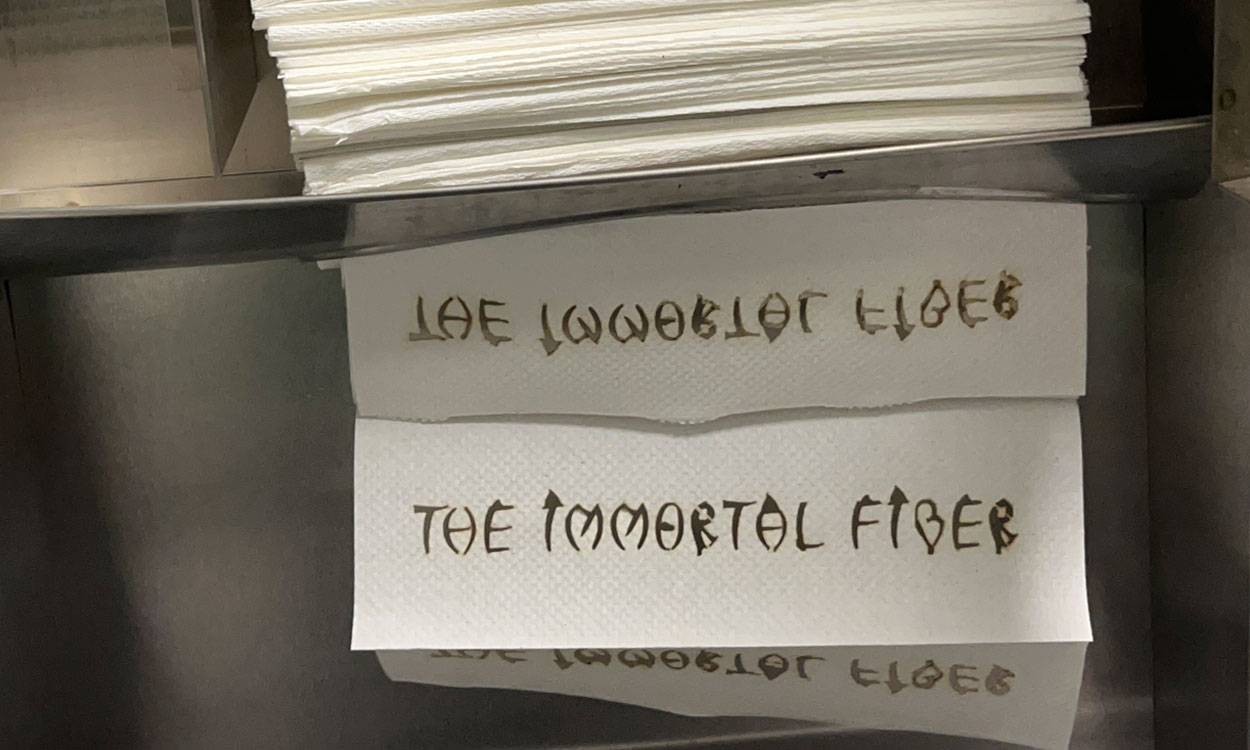 THE IMMORTAL FIBER
THE IMMORTAL FIBER
THE IMMORTAL FIBER